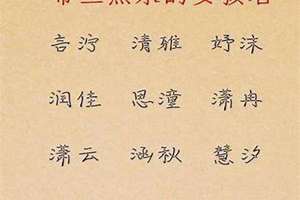 带三点水的女孩名
言泞 清雅 妤沫
润佳 思潼 潇冉
潇云 涵秋 慧汐